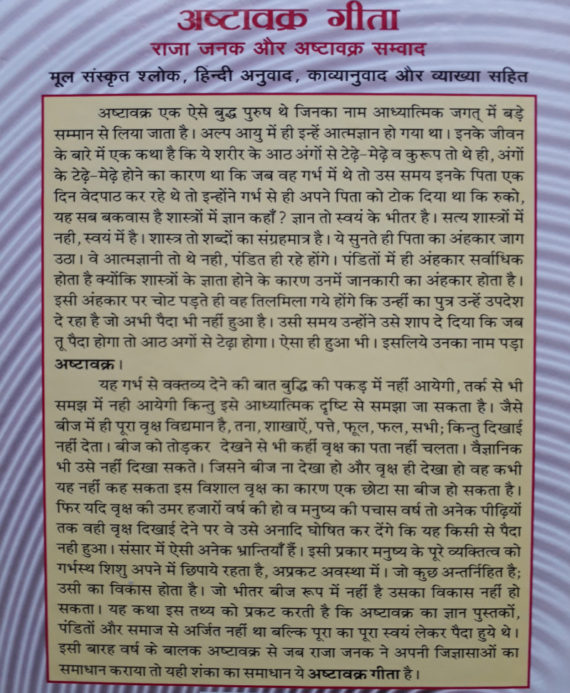 अष्टावक्र गीता
राजा जनक और अष्टावक्र सम्वाद
मूल संस्कृत श्लोक, हिन्दी अनुवाद, काव्यानुवाद और व्याख्या सहित
अष्टावक्र एक ऐसे बुद्ध पुरुष थे जिनका नाम आध्यात्मिक जगत् में बड़े
सम्मान से लिया जाता है। अल्प आयु में ही इन्हें आत्मज्ञान हो गया था। इनके जीवन
के बारे में एक कथा है कि ये शरीर के आठ अंगों से टेढ़े-मेढ़े व कुरूप तो थे ही, अंगों
के टेढ़े-मेढ़े होने का कारण था कि जब वह गर्भ में थे तो उस समय इनके पिता एक
दिन वेदपाठ कर रहे थे तो इन्होंने गर्भ से ही अपने पिता को टोक दिया था कि रुको,
यह सब बकवास है शास्त्रों में ज्ञान कहाँ? ज्ञान तो स्वयं के भीतर है। सत्य शास्त्रों में
नही, स्वयं में है। शास्त्र तो शब्दों का संग्रहमात्र है। ये सुनते ही पिता का अंहकार जाग
उठा। वे आत्मज्ञानी तो थे नही, पंडित ही रहे होंगे। पंडितों में ही अंहकार सर्वाधिक
होता है क्योंकि शास्त्रों के ज्ञाता होने के कारण उनमें जानकारी का अंहकार होता है।
इसी अंहकार पर चोट पड़ते ही वह तिलमिला गये होंगे कि उन्हीं का पुत्र उन्हें उपदेश
दे रहा है जो अभी पैदा भी नहीं हुआ है। उसी समय उन्होंने उसे शाप दे दिया कि जब
तू पैदा होगा तो आठ अगों से टेढ़ा होगा। ऐसा ही हुआ भी। इसलिये उनका नाम पड़ा
अष्टावक्र।
यह गर्भ से वक्तव्य देने की बात बुद्धि की पकड़ में नहीं आयेगी, तर्क से भी
समझ में नही आयेगी किन्तु इसे आध्यात्मिक दृष्टि से समझा जा सकता है। जैसे
बीज में ही पूरा वृक्ष विद्यमान है, तना, शाखाऐं, पत्ते, फूल, फल, सभी; किन्तु दिखाई
नहीं देता। बीज को तोड़कर देखने से भी कहीं वृक्ष का पता नहीं चलता। वैज्ञानिक
भी उसे नहीं दिखा सकते। जिसने बीज ना देखा हो और वृक्ष ही देखा हो वह कभी
यह नहीं कह सकता इस विशाल वृक्ष का कारण एक छोटा सा बीज हो सकता है।
फिर यदि वृक्ष की उमर हजारों वर्ष की हो व मनुष्य की पचास वर्ष तो अनेक पीढ़ियों
तक वही वृक्ष दिखाई देने पर वे उसे अनादि घोषित कर देंगे कि यह किसी से पैदा
नही हुआ। संसार में ऐसी अनेक भ्रान्तियाँ हैं। इसी प्रकार मनुष्य के पूरे व्यक्तित्व को
गर्भस्थ शिशु अपने में छिपाये रहता है, अप्रकट अवस्था में। जो कुछ अन्तर्निहित है;
उसी का विकास होता है। जो भीतर बीज रूप में नहीं है उसका विकास नहीं हो
सकता। यह कथा इस तथ्य को प्रकट करती है कि अष्टावक्र का ज्ञान पुस्तकों,
पंडितों और समाज से अर्जित नहीं था बल्कि पूरा का पूरा स्वयं लेकर पैदा हुये थे।
इसी बारह वर्ष के बालक अष्टावक्र से जब राजा जनक ने अपनी जिज्ञासाओं का
समाधान कराया तो यही शंका का समाधान ये अष्टावक्र गीता है।